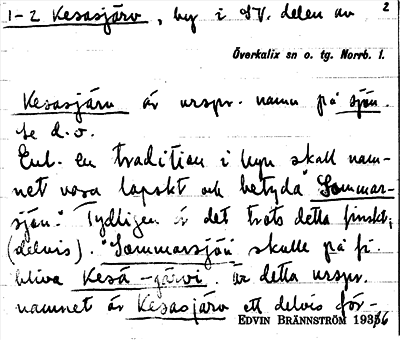 1-2 Kesasjärv, by i SV. delen av 2
Överkalix sn o. tg. Norrb. l.
Kesasjärv är urspr. namn på sjön.
Se d.o.
Enl. en tradition i byn skall nam-
net vara lapskt och betyda "Sommar-
sjön." Tydligen är det trots detta finskt,
(delvis). "Sommarsjön skulle på fi.
bliva Kesä-järvi. är detta urspr.
namnet är Kesasjärv ett delvis för-
EDVIN BRÄNNSTRÖM 1936